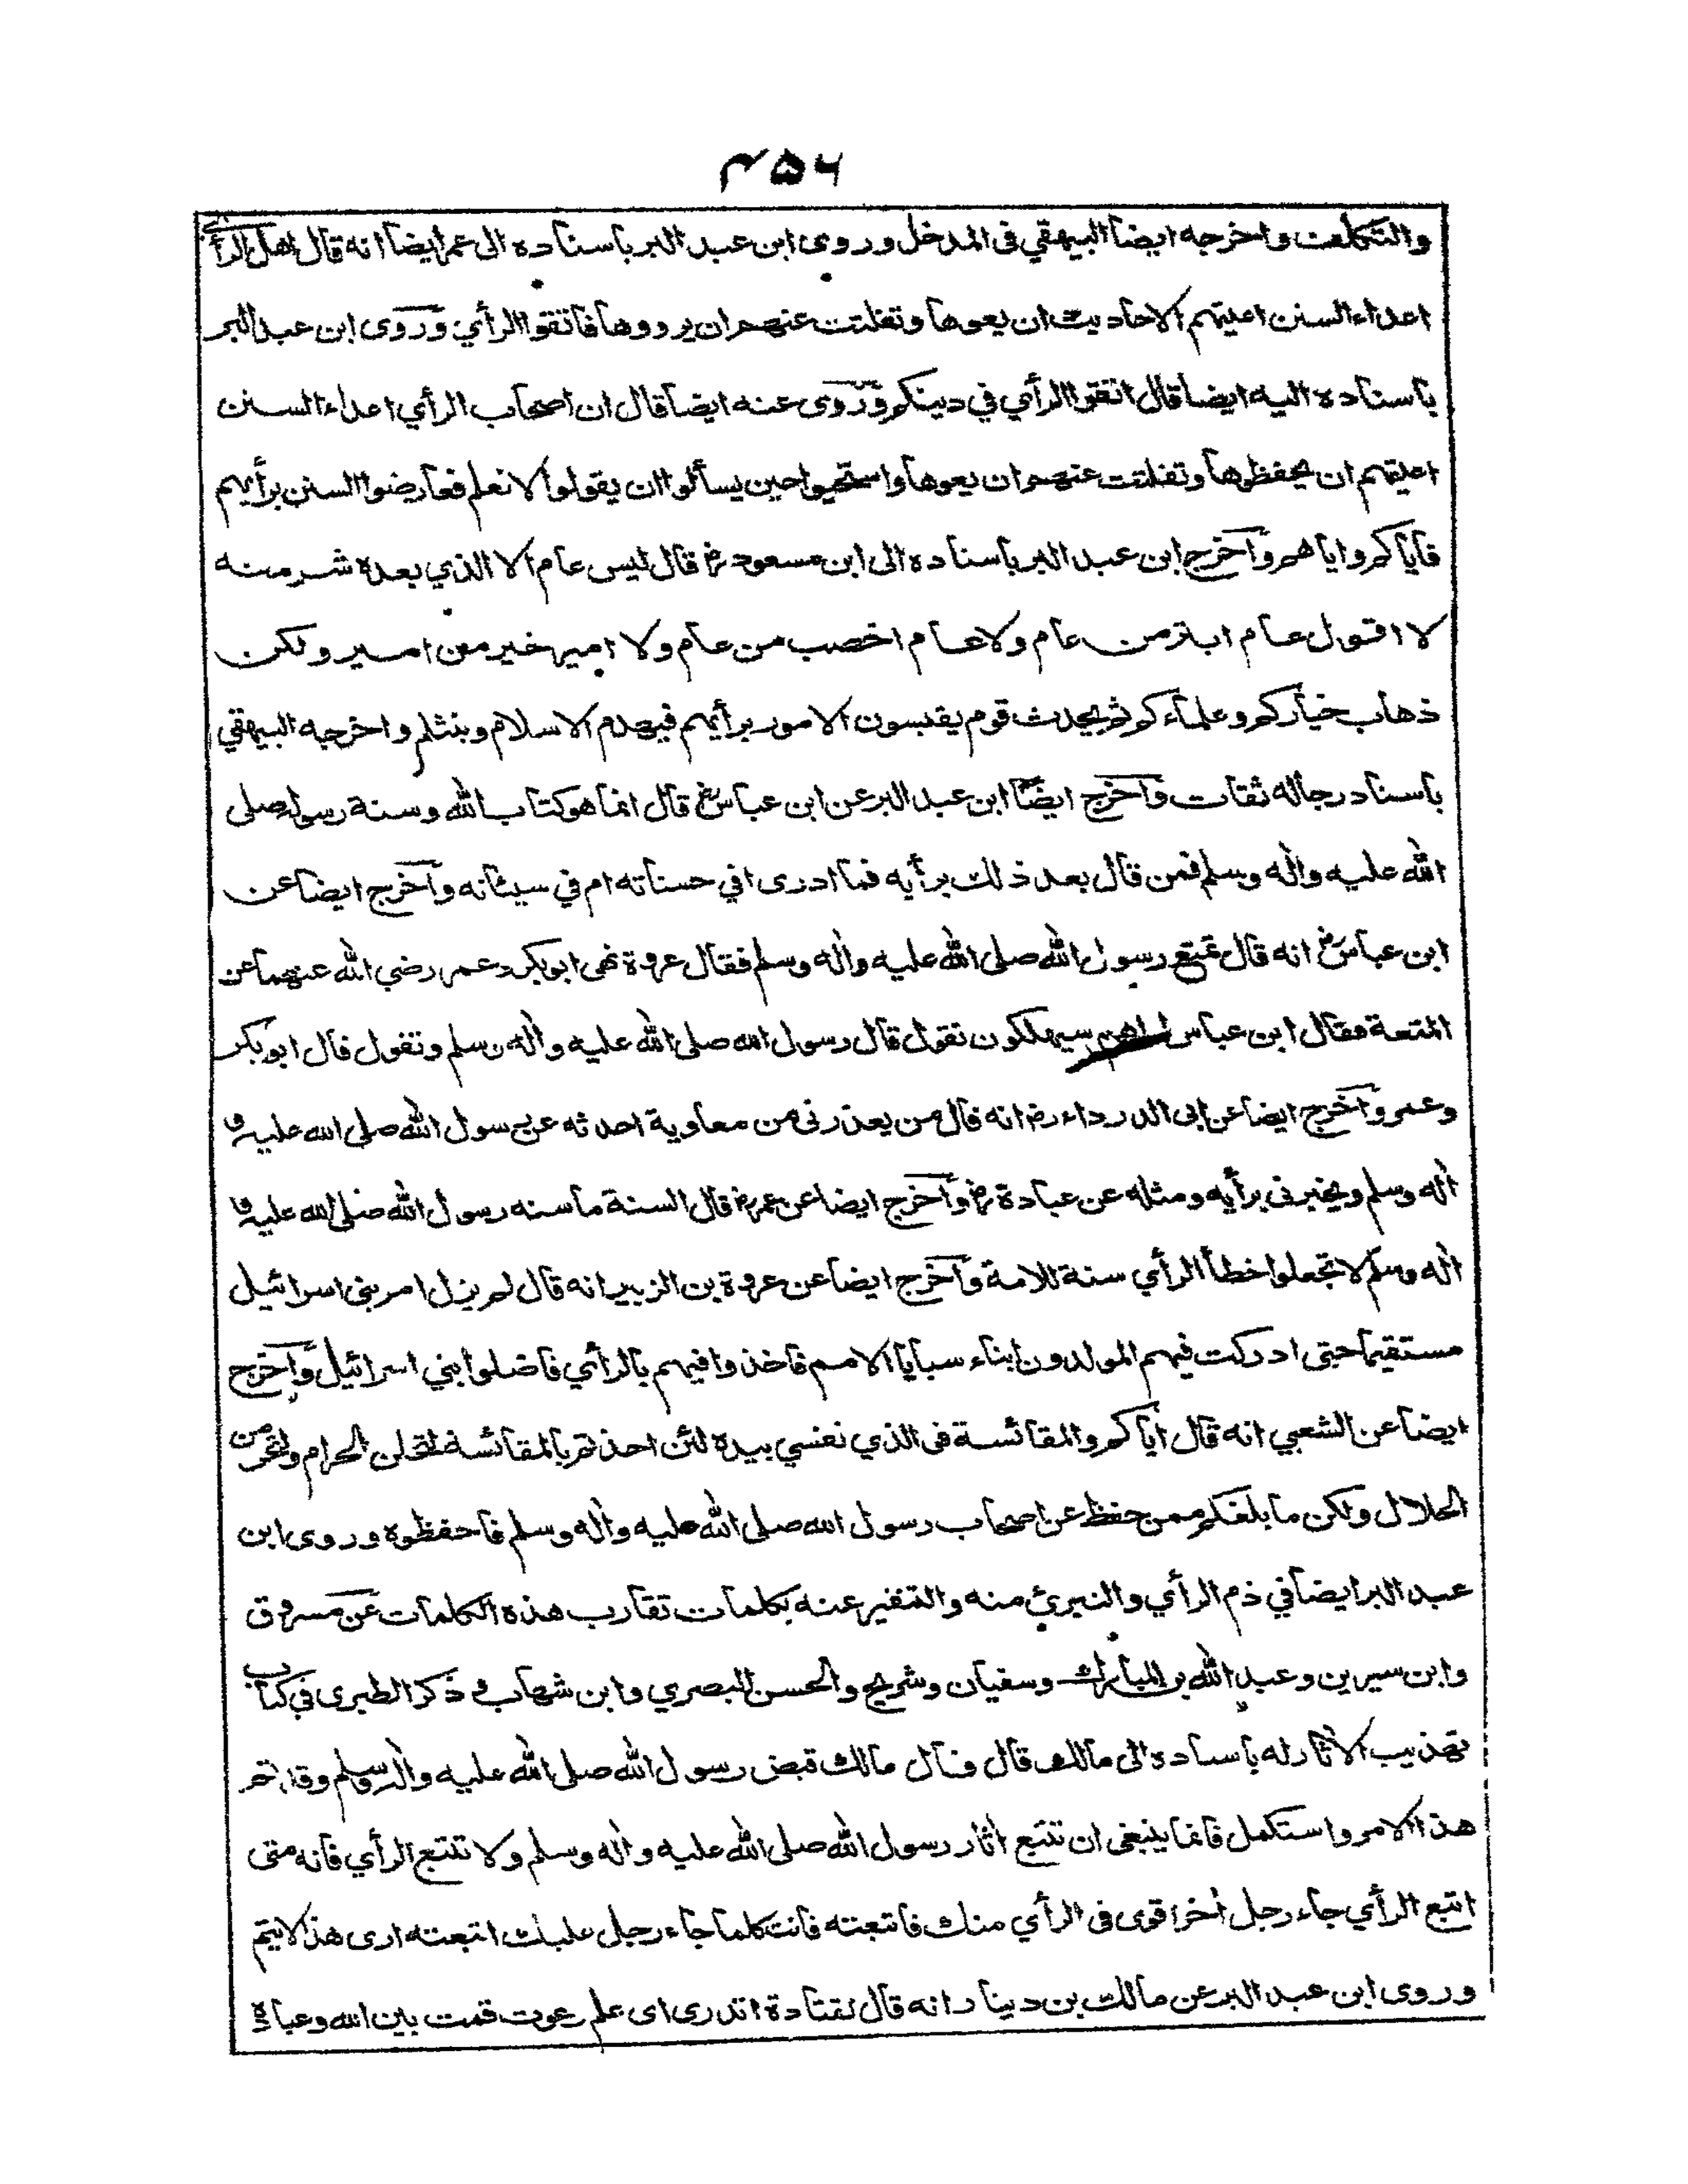 ۴۵۶
والتكلف واخرجه ايضا البيهقي في المدخل وروى ابن عبد البر باسناده الى عمر ايضا انه قال اهل الرأي
اعداء السنن اعيتهم الاحاديث ان يعوها وتفلتت عنهم ان يردوها فاتقوا الرأي وروى ابن عبد البر
باسناده اليه ايضا قال اتقوا الرأي في دينكم وروى عنه ايضا قال ان اصحاب الرأي اعداء السنن
اعيتهم ان يحفظوها وتفلتت عنهم ان يعوها واستحيوا حين يسألوا ان يقولوا لا نعلم فعارضوا السنن برأيهم
فاياكم واياهم واخرج ابن عبد البر باسناده الى ابن مسعود رض قال ليس عام الا الذي بعده شر منه
لا اقول عام ابتر من عام ولا عام اخصب من عام ولا امير خير من امير ولكن
ذهاب خياركم وعلماءكم ثم يحدث قوم يقيسون الامور برأيهم فيهدم الاسلام وينثلم واخرجه البيهقي
باسناد رجاله ثقات واخرج ايضا ابن عبد البر عن ابن عباس رض قال انما هو كتاب الله وسنة رسوله صلى
الله عليه واٰله وسلم فمن قال بعد ذلك برأيه فما ادرى افي حسناته ام في سيئاته واخرج ايضا عن
ابن عباس رض انه قال تمتع رسول الله صلى الله عليه واٰله وسلم فقال عروة نهى ابو بكر وعمر رضي الله عنهما عن
المتعة فقال ابن عباس اراهم سيهلكون نقول قال رسول الله صلى الله عليه واٰله وسلم وتقول قال ابو بكر
وعمر واخرج ايضا عن ابى الدرداء رض انه قال من يعذرنى من معاوية احدثه عن رسول الله صلى الله عليه و
اٰله وسلم ويخبرنى برأيه ومثله عن عبادة رض واخرج ايضا عن عمر رض قال السنة ما سنه رسول الله صلى الله عليه و
اٰله وسلم لا تجعلوا خطأ الرأي سنة للامة واخرج ايضا عن عروة بن الزبير انه قال لم يزل امر بنى اسرائيل
مستقيما حتى ادركت فيهم المولدون ابناء سبايا الامم فاخذوا فيهم بالرأي فاضلوا بني اسرائيل واخرج
ايضا عن الشعبي انه قال اياكم والمقائسة فى الذي نفسي بيده لئن اخذتم بالمقائسة لتحلن الحرام ولتحرمن
الحلال ولكن ما بلغكم ممن حفظ عن اصحاب رسول الله صلى الله عليه واٰله وسلم فاحفظوه وروى ابن
عبد البر ايضا في ذم الرأي والتبرئ منه والتنفير عنه بكلمات تقارب هذه الكلمات عن مسروق
وابن سيرين وعبد الله بن المبارك وسفيان وشريح والحسن البصري وابن شهاب و ذكر الطبرى في كتاب
تهذيب الاٰثار له باسناده الى مالك قال قال مالك قبض رسول الله صلى الله عليه واٰله وسلم وقد تم
هذا الامر واستكمل فانما ينبغى ان تتبع اٰثار رسول الله صلى الله عليه واٰله وسلم ولا تتبع الرأي فانه متى
اتبع الرأي جاء رجل اٰخر اقوى فى الرأي منك فاتبعته فانت كلما جاء رجل غلبك اتبعته ارى هذا لا يتم
وروى ابن عبد البر عن مالك بن دينار انه قال لقتادة اتدرى اى علم رعوت قمت بين الله وعباده